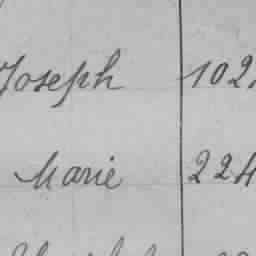 Joseph 102
Marie 224